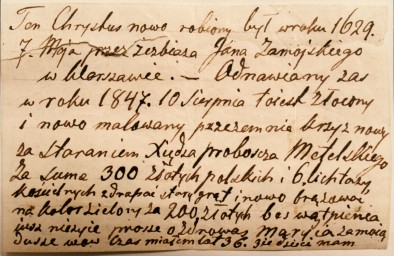 Ten Chrystus nowo robiony był wroku 1629.
7. Maja przez Zerbiarza Jana Zamojskiego
w Warszawie. — Odnawiany zas
w roku 1847. 10 Sierpnia toiest złocony
i nowo malowany przezemnie krzyz nowy
za staraniem Xiędza proboscza Metelskiego
Za suma 300 złotych polskich i 6. lichtarzy
kościelnych zdrapać stary grąt i nowo brązować
na kolor zielony za 200 złotych bo wątpienia
iusz nieżyie prosze o zdrowaś Maryia zamoią
Dusze wów czas miałem lat 36. dzieści mam